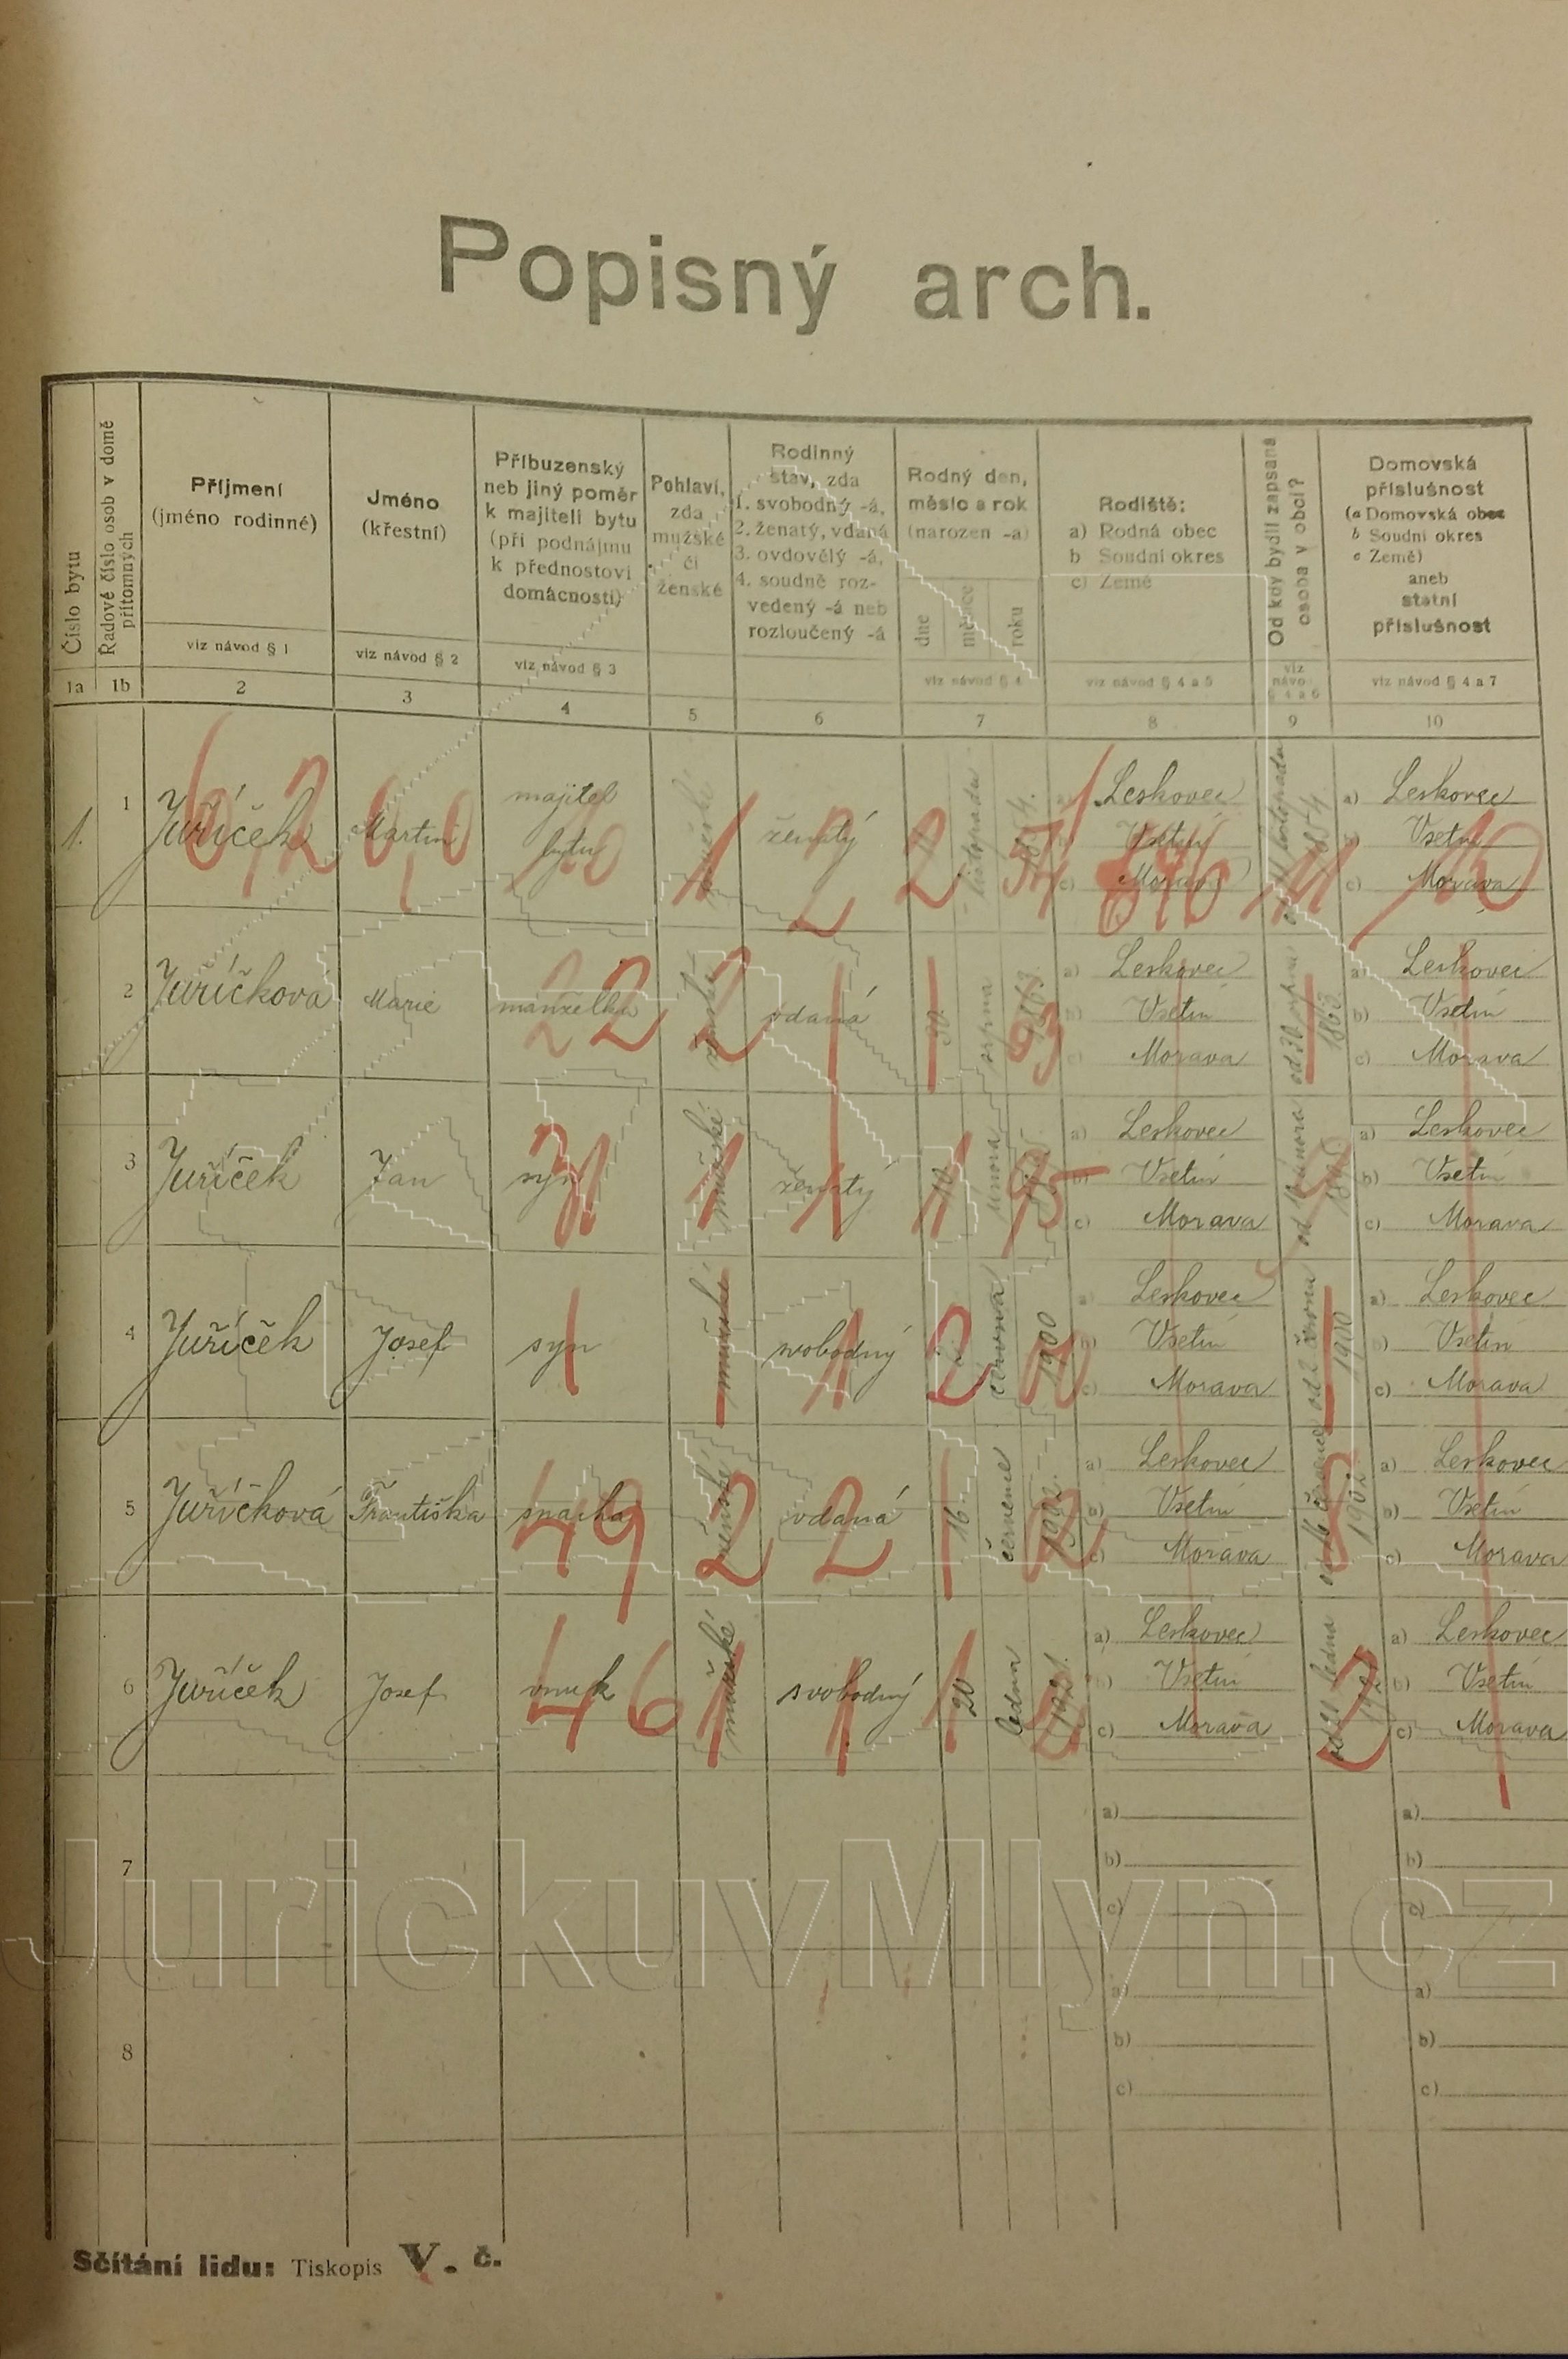 Popisný arch.
Číslo bytu
Řadové číslo osob v domě
přítomných
Příjmení
(jméno rodinné)
viz návod § 1
Jméno
(křestní)
viz návod § 2
Příbuzenský
neb jiný poměr
k majiteli bytu
(při podnájmu
k přednostovi
domácnosti)
viz návod § 3
Pohlaví,
zda
mužské
či
ženské
Rodinný
stav, zda
1. svobodný -á,
2. ženatý, vdaná
3. ovdovělý -á,
4. soudně roz-
vedený -á neb
rozloučený -á
Rodný den,
měsíc a rok
(narozen -a)
dne
měsíce
roku
viz návod § 4
Rodiště:
a) Rodná obec
b Soudní okres
c) Země
viz návod § 4 a 5
Od kdy bydlí zapsaná
osoba v obci?
viz
návo
§ 4 a 6
Domovská
příslušnost
(a Domovská obec
b Soudní okres
c Země)
aneb
státní
příslušnost
viz návod § 4 a 7
1a 1b 2 3 4 5 6 7 8 9 10
1. 1 Juříček Martin majitel
bytu
mužské ženatý listopadu 1854.
a) Leskovec
b) Vsetín
c) Morava
listopadu
1854
a) Leskovec
b) Vsetín
c) Morava
2 Juříčková Marie manželka ženské vdaná 30. srpna 1863.
a) Leskovec
b) Vsetín
c) Morava
od 30. srpna
1863.
a) Leskovec
b) Vsetín
c) Morava
3 Juříček Jan syn mužské ženatý 10. února 1895.
a) Leskovec
b) Vsetín
c) Morava
od 10 února
1895.
a) Leskovec
b) Vsetín
c) Morava
4 Juříček Josef syn mužské svobodný 2. června 1900
a) Leskovec
b) Vsetín
c) Morava
od 2 června
1900
a) Leskovec
b) Vsetín
c) Morava
5 Juříčková Františka snacha ženské vdaná 16. července 1902.
a) Leskovec
b) Vsetín
c) Morava
od 16 července
1902.
a) Leskovec
b) Vsetín
c) Morava
6 Juříček Josef vnuk mužské svobodný 20 ledna 1921.
a) Leskovec
b) Vsetín
c) Morava
ledna
a) Leskovec
b) Vsetín
c) Morava
7
a) a)
b) b)
c) c)
8
a) a)
b) b)
c) c)
JurickuvMlyn.cz
Sčítání lidu: Tiskopis V. č.